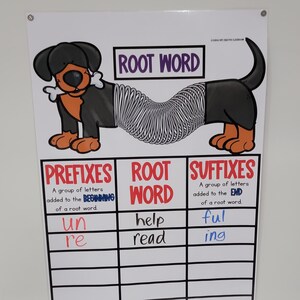 ROOT WORD
PREFIXES
A group of letters
added to the BEGINNING
of a root word.
ROOT
WORD
SUFFIXES
A group of letters
added to the END
of a root word.
un help ful
re read ing